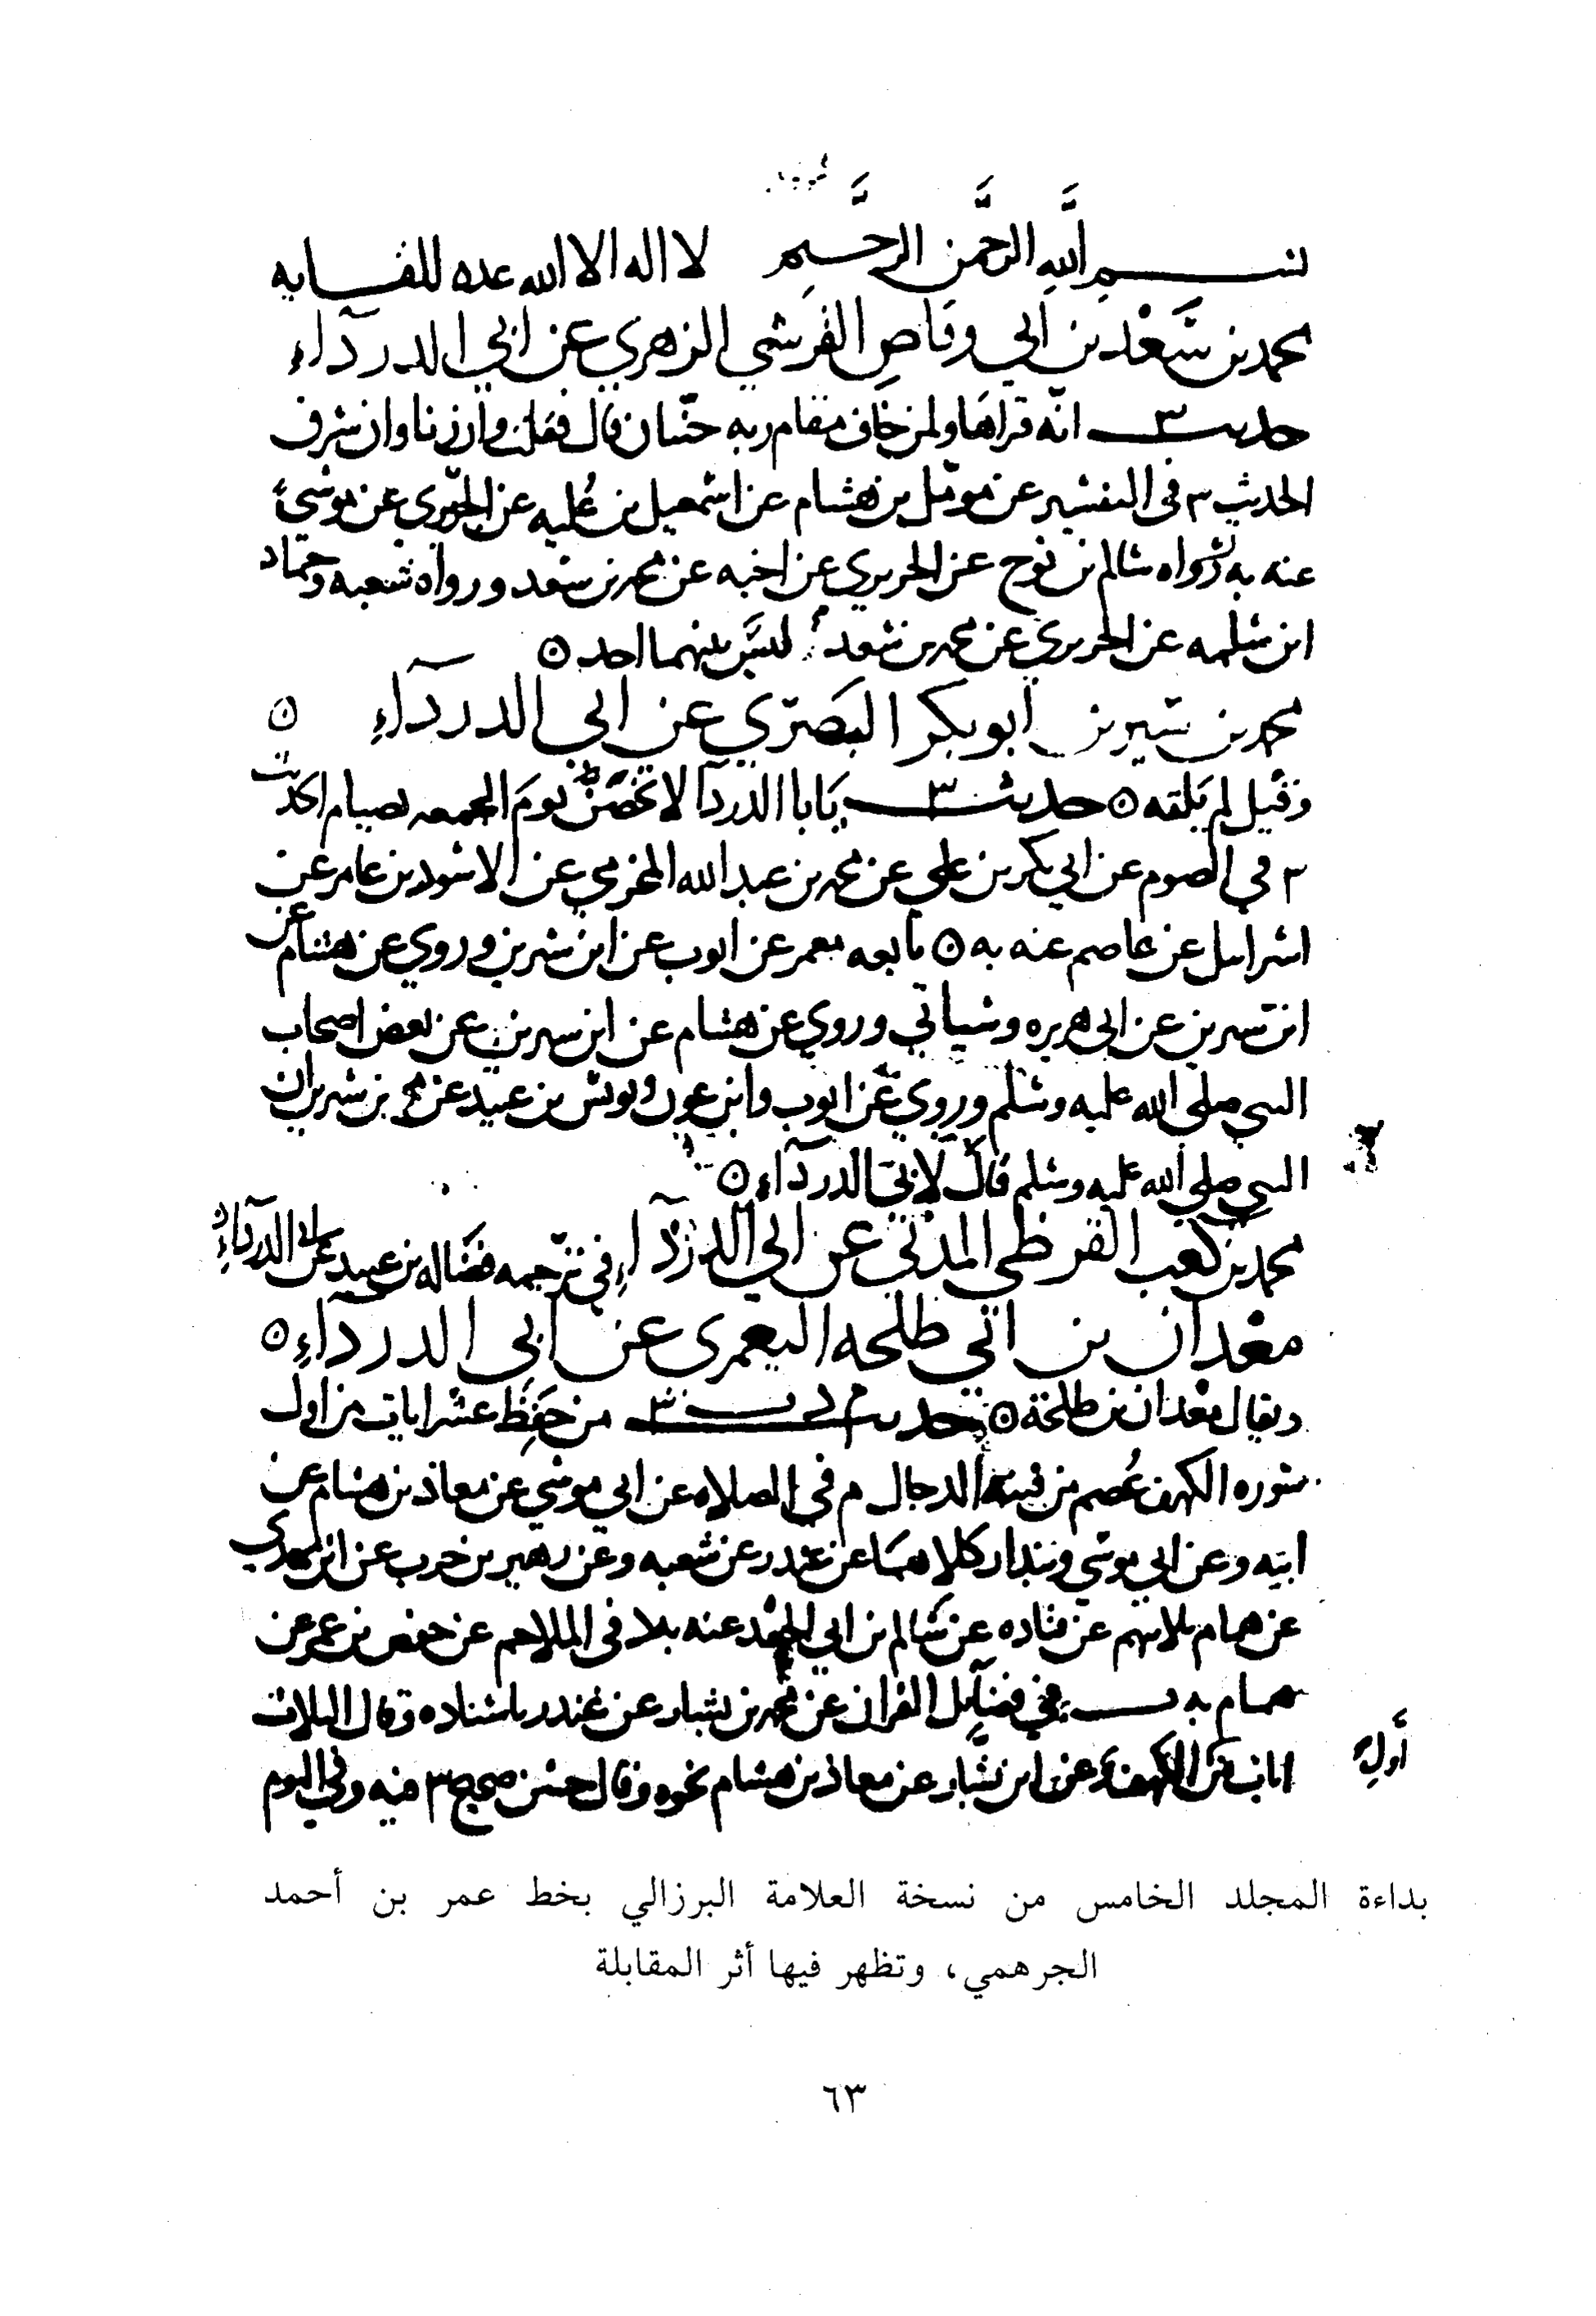 بسم الله الرحمن الرحيم لا اله الا الله عده للقايه
محمد بن سعد بن ابي وقاص القرشي الزهري عن ابي الدرداء
حديث س انه قراها ولمن خاف مقام ربه جنتان قال فقلت وان زنا وان سرف
الحديث س في التفسير عن مومل بن هشام عن اسمعيل بن علية عن الجريري عن موسى
عنه به ورواه سالم بن نوح عن الجريري عن اخيه عن محمد بن سعد ورواه شعبه وحماد
ابن سلمه عن الجريري عن محمد بن سعد ليس بينهما احد ه
محمد بن سيرين ابو بكر البصري عن ابي الدرداء ه
وقيل لم يلقه ه حديث س يابا الدردا لا تخصن يوم الجمعه بصيام الحديث
س في الصوم عن ابي بكر بن علي عن محمد بن عبد الله المخرمي عن الاسود بن عامر عن
اسرايل عن عاصم عنه به ه تابعه معمر عن ايوب عن ابن سيرين وروي عن هشام عن
ابن سيرين عن ابي هريره وسياتي وروي عن هشام عن ابن سيرين عن بعض اصحاب
النبي صلى الله عليه وسلم وروي عن ايوب وابن عون ويونس بن عبيد عن محمد بن سيرين ان
النبي صلى الله عليه وسلم قال لابي الدرداء ه
محمد بن كعب القرظي المدني عن ابي الدرداء في ترجمه فضاله بن عبيد عن ابي الدرداء ه
معدان بن ابي طلحه اليعمرى عن ابي الدرداء ه
ويقال معدان بن طلحة ه حديث م د ت س من حفظ عشر ايات من اول
سوره الكهف عصم من فتنة الدجال م في الصلاه عن ابي موسي عن معاذ بن هشام عن
ابيه وعن ابي موسي وبندار كلاهما عن غندر عن شعبه وعن زهير بن حرب عن ابن مهدي
عن همام ثلاثتهم عن قتاده عن سالم بن ابي الجعد عنه به د في الملاحم عن حفص بن عمر عن
همام به ت في فضايل القران عن محمد بن بشار عن غندر باسناده وقال ثلاث
ايات من اول الكهف وعن ابن بشار عن معاذ بن هشام نحوه وقال حسن صحيح س فيه وفي اليوم
بداءة المجلد الخامس من نسخة العلامة البرزالي بخط عمر بن أحمد
الجرهمي، وتظهر فيها أثر المقابلة
٦٣